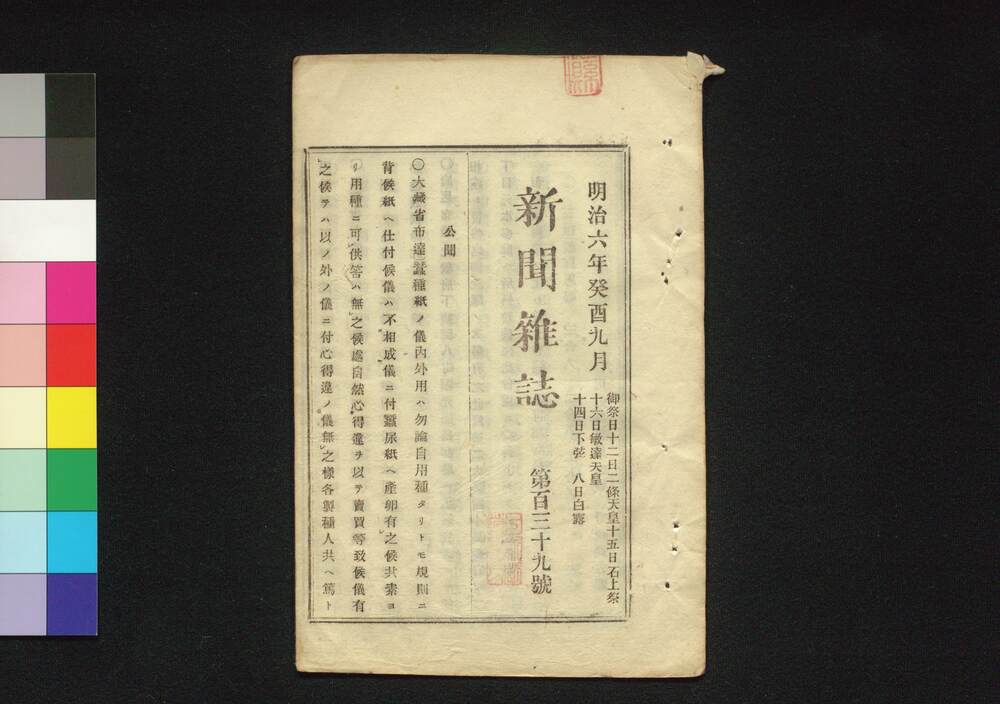 明治六年癸酉九月
御祭日十二日二條天皇十五日石上祭
十六日敏達天皇
十四日下弦 八日白露
新聞雜誌
第百三十九號
公聞
〇大藏省布達蠶種紙ノ儀内外用ハ勿論自用種タリトモ規則ニ
背候紙ヘ仕付候儀ハ不相成儀ニ付蠶尿紙ヘ産卵有之候共素ヨ
リ用種ニ可供筈ハ無之候處自然心得違ヲ以テ賣買等致候儀有
之候テハ以ノ外ノ儀ニ付心得違ノ儀無之樣各製種人共ヘ篤ト